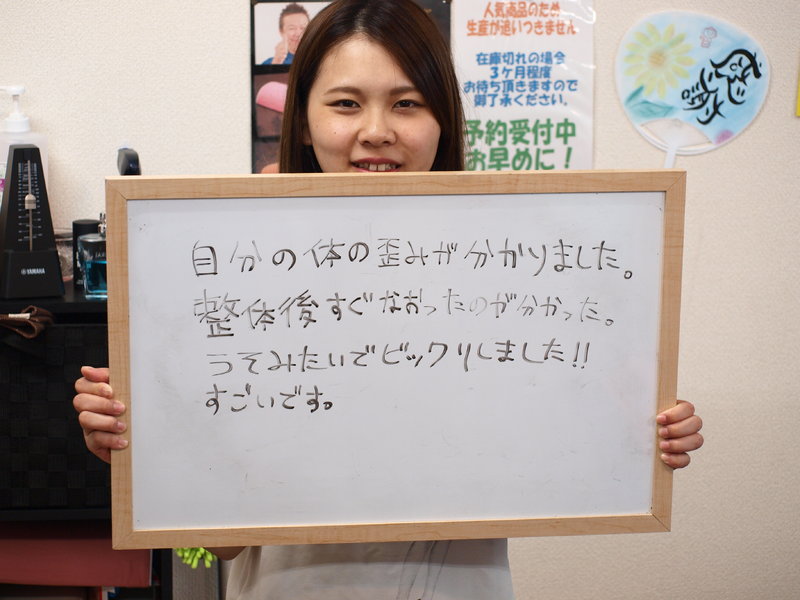 人気商品のため
生産が追いつきません
在庫切れの場合
3ヶ月程度
お待ち頂きますので
御了承ください。
予約受付中
お早めに！
YAMAHA
自分の体の歪みが分かりました。
整体後すぐなおったのが分かった。
うそみたいでビックリしました!!
すごいです。